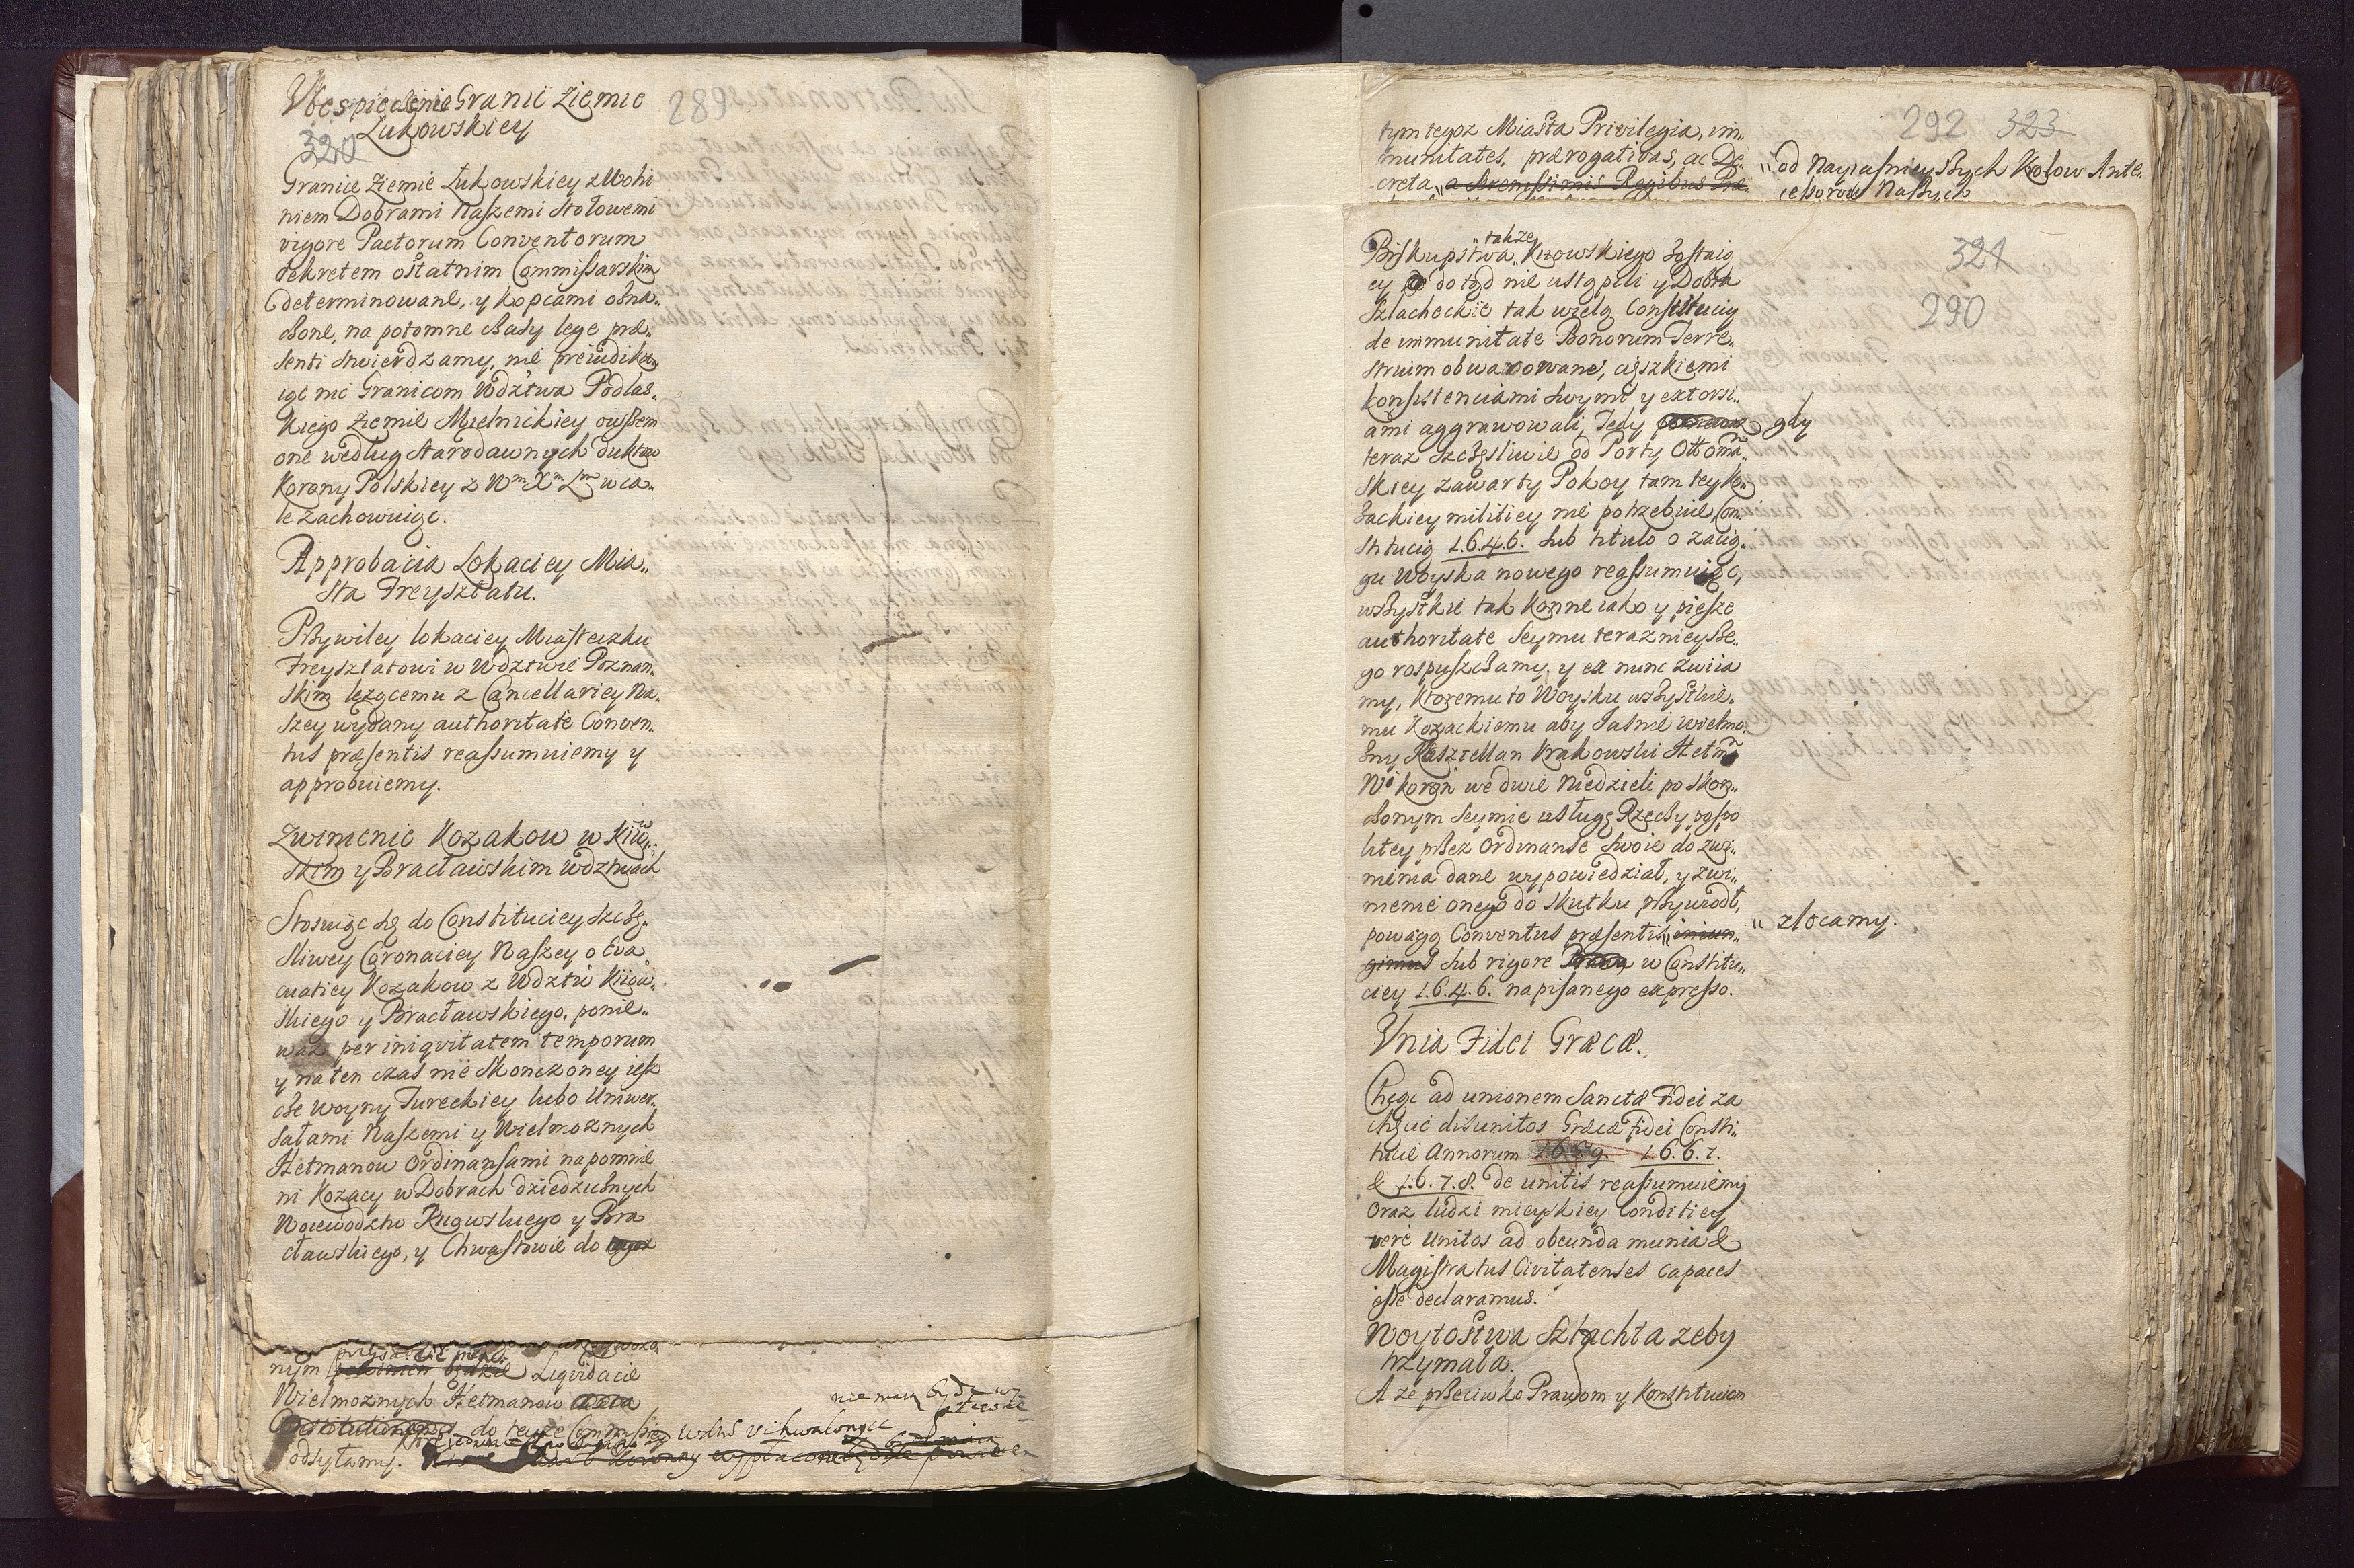 Vbespieczenie Granic Ziemie
Łukowskiey
289
320
Granice Ziemie Łukowskiey z Wohi
niem Dobrami Naszemi Stołowemi
vigore Pactorum Conventorum
dekretem ostatnim Commissarskim
determinowane, y kopcami ozna„
czone, na potomne czasy lege præ„
senti stwierdzamy, nie preiudiku„
iąc nic Granicom Wdztwa Podlas„
kiego Ziemie Mielnickiey owszem
one według starodawnych duktow
Korony Polskiey z Wm Xm Lm w ca„
le zachowuiąc.
Approbacia Lokaciey Mia„
sta Freysztatu.
Przywiley lokaciey Miasteczku
Freysztatowi w Wdztwie Poznan„
skim lezącemu z Cancellariey Na„
szey wydany authoritate Conven„
tus præsentis reassumuiemy y
approbuiemy.
Zwinienie Kozakow w Kiiow„
skim y Bracławskim Wdztwach
Stosuiąc się do Constituciey szczę„
sliwey Coronaciey Naszey o Eva„
cuatiey Kozakow z Wdztw Kiiow„
skiego y Bracławskiego, ponie„
waz per iniqvitatem temporum
y na ten czas nie skonczoney iesz
cze woyny Tureckiey lubo Uniwer„
sałami Naszemi y Wielmoznych
Hetmanow Ordinansami napomnie
ni Kozacy w Dobrach dziedzicznych
Woiewodztw Kiiowskiego y Bra
cławskiego, y Chwastowie do
nym Ligvidacie
Wielmoznych Hetmanow
do teyze Commissiey
odsyłamy.
tym tegoz Miasta Privilegia, im„
munitates, prærogativas, ac De„
creta „a Serenissimis Regibus Præ„
292 323
„od Nayiasnieyszych Krolow Ante„
cessorow Naszych
„także
Biskupstwa „Kiiowskiego zostaią
cy do tąd nie ustąpili y Dobra
Szlacheckie tak wielą Constituciy
de immunitate Bonorum Terre„
strium obwarowane, cięszkiemi
konsistenciami swymi y extorsi„
ami aggrawowali, Tedy gdy
teraz szczęsliwie od Porty Ottoma„
skiey zawarty Pokoy tamtey Ko„
zackiey militiey nie potrzebuie, Con„
stitucią 1.6.4.6. sub titulo o zacią„
gu Woyska nowego reassumuiąc,
wszystkie tak konne iako y piesze
authoritate Seymu teraznieysze„
go rospuszczamy, y ex nunc zwiia
my, ktoremu to Woysku wszystkie„
mu Kozackiemu aby Jasnie Wielmo„
zny Kasztellan Krakowski Hetman
Wi Koron we dwie Niedzieli po skon„
czonym Seymie usługę Rzeczy pospo
litey przez Ordinanse swoie do zwi„
nienia dane wypowiedział, y zwi„
nienie onego do skutku przywiodł,
powagą Conventus præsentis „iniun„
gimus sub rigore Prawa w Constitu„
ciey 1.6.4.6. napisanego expresso.
„ zlecamy.
321
290
Vnia Fidei Græcæ.
Chcąc ad unionem Sanctæ Fidei za
chęcić disunitos Græcæ Fidei Consti„
tucie Annorum 1.6.6.7.
& 1.6.7.8. de unitis reassumuiemy
oraz ludzi mieyskiey Conditiey
vere Unitos ad obeunda munia &
Magistratus Civitatenses capaces
esse declaramus.
Woytostwa Szlachta zeby
trzymała.
A ze przeciwko Prawom y Konstitucom